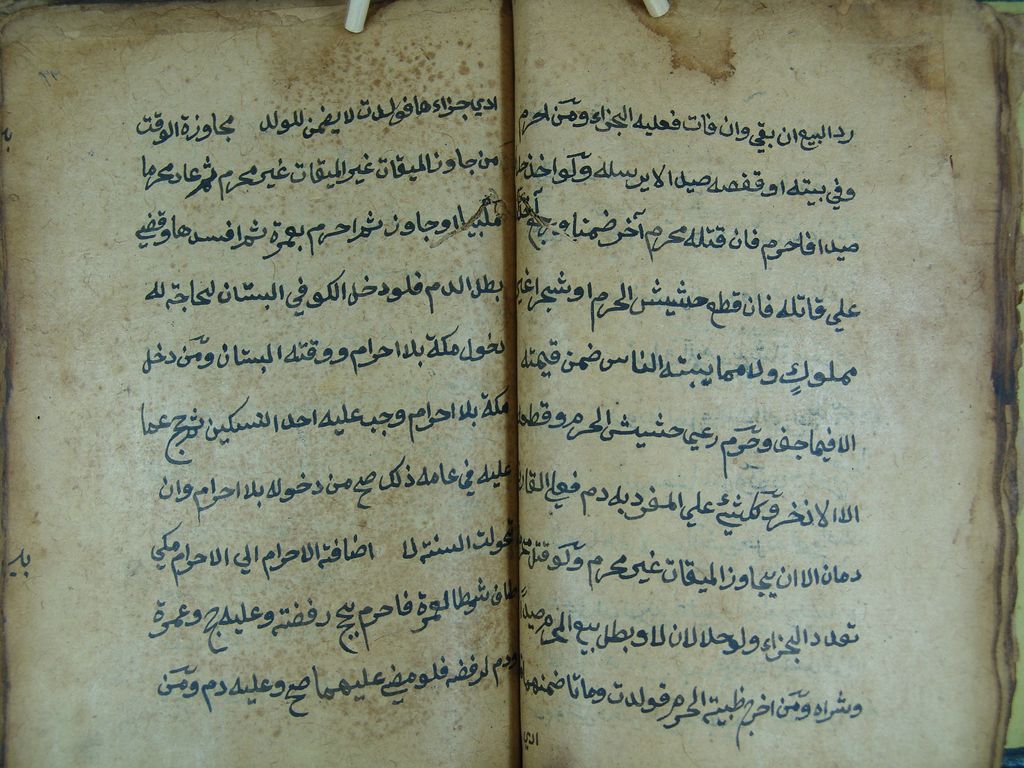 رد البيع ان بقي وان فات فعليه الجزاء ومن احرم
وفي بيته او قفصه صيد لا يرسله ولو اخذ حلال
صيدا فاحرم فان قتله محرم آخر ضمنا ويرجع آخذه
علي قاتله فان قطع حشيش الحرم او شجرا غير
مملوكٍ ولا مما ينبته الناس ضمن قيمته
الا فيما جف وحرم رعي حشيش الحرم وقطعه
الا الاذخر وكل شئ علي المفرد به دم فعلي القارن
دمان الا ان يجاوز الميقات غير محرم ولو قتل
تعدد الجزاء ولو حلالان لا وبطل بيع المحرم صيدا
وشراه ومن اخرج ظبية الحرم فولدت وماتا ضمنهما
ادي
ادي جزاءها فولدت لا يضمن للولد مجاوزة الوقت
من جاوز الميقات غير الميقات غير محرم ثم عاد محرما
ملبيا او جاوز ثم احرم بعمرة ثم افسدها وقضي
بطل الدم فلو دخل الكوفي البستان لحاجة له
دخول مكة بلا احرام ووقته البستان ومن دخل
مكة بلا احرام وجب عليه احد النسكين ثم حج عما
عليه في عامه ذلك صح من دخوله بلا احرام وان
تحولت السنة لا اضافة الاحرام الي الاحرام مكي
طاف شوطا لعمرة فاحرم بحج رفضته وعليه حج وعمرة
ودم لرفضه فلو مضي عليهما صح وعليه دم ومن